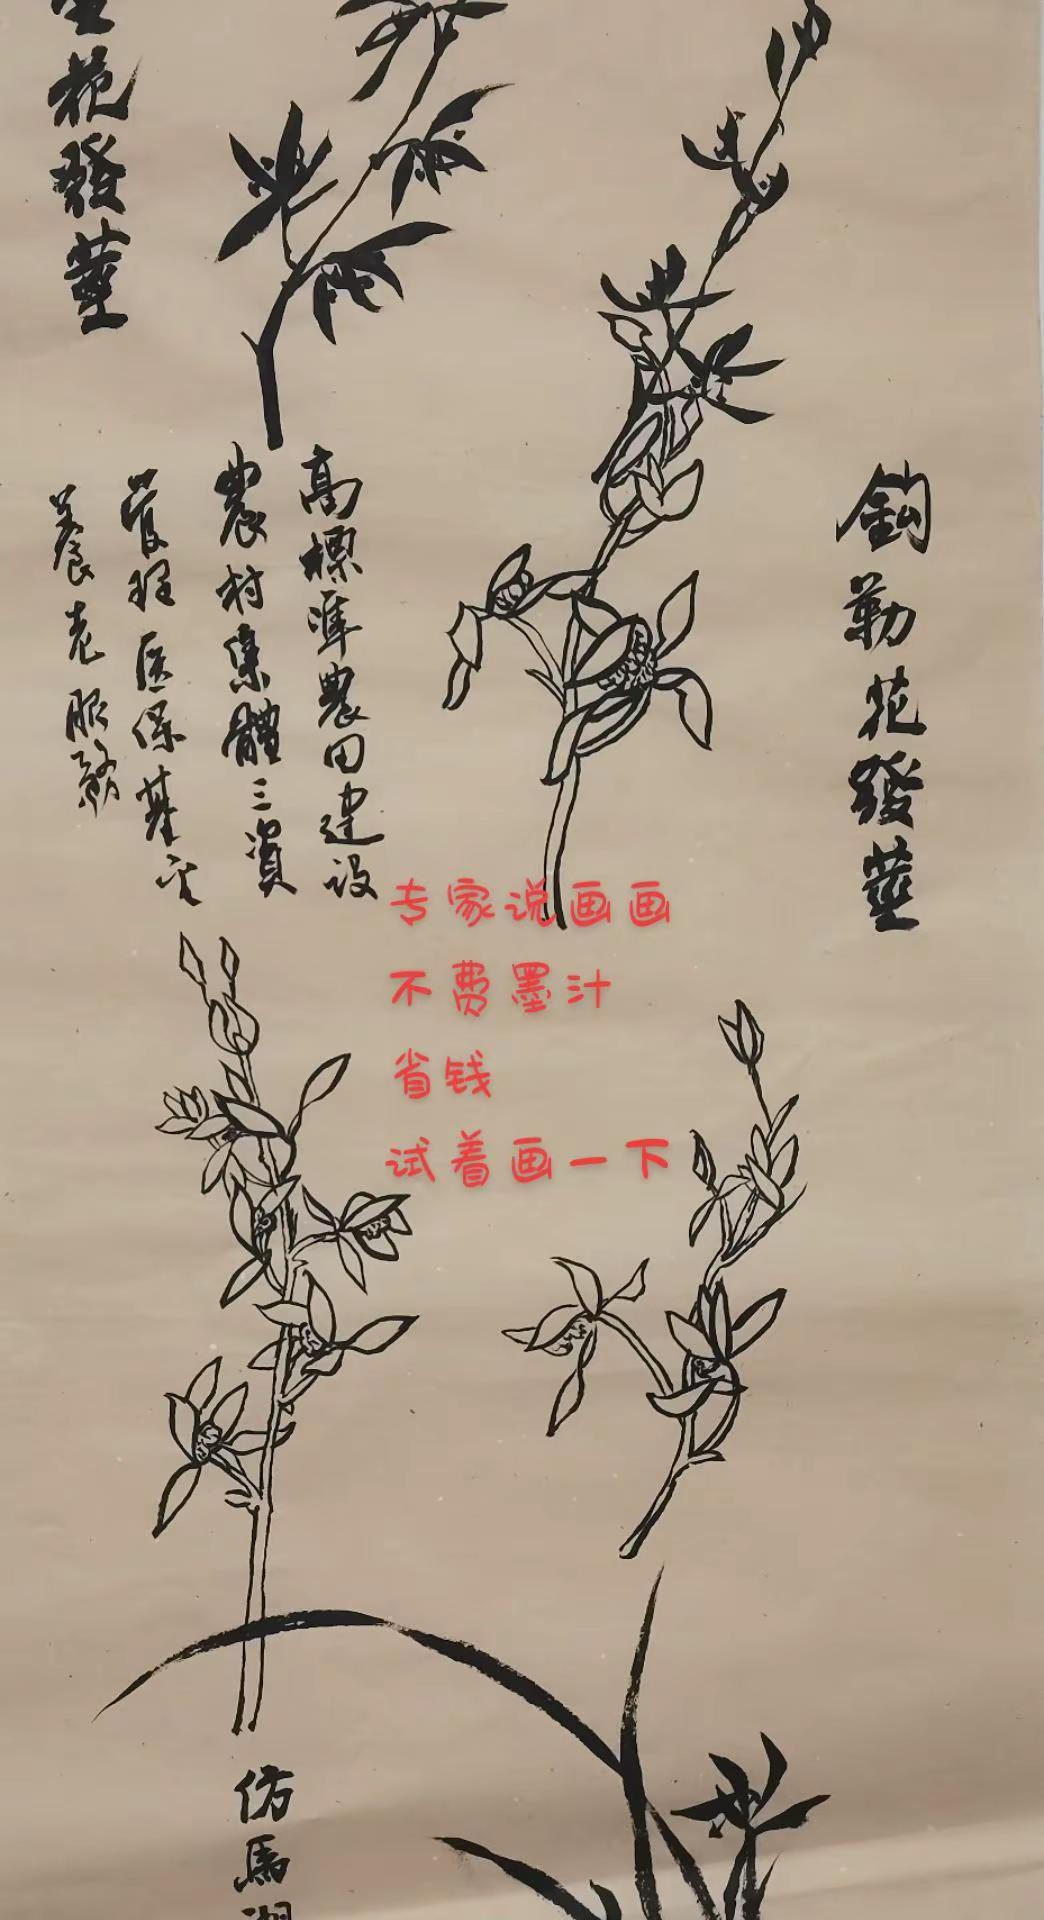 花發莖
鈎勒花發莖
高標準農田建设
農村集體三資
管理医保基金
養老服務
专家说画画
不费墨汁
省钱
试着画一下
仿馬湖